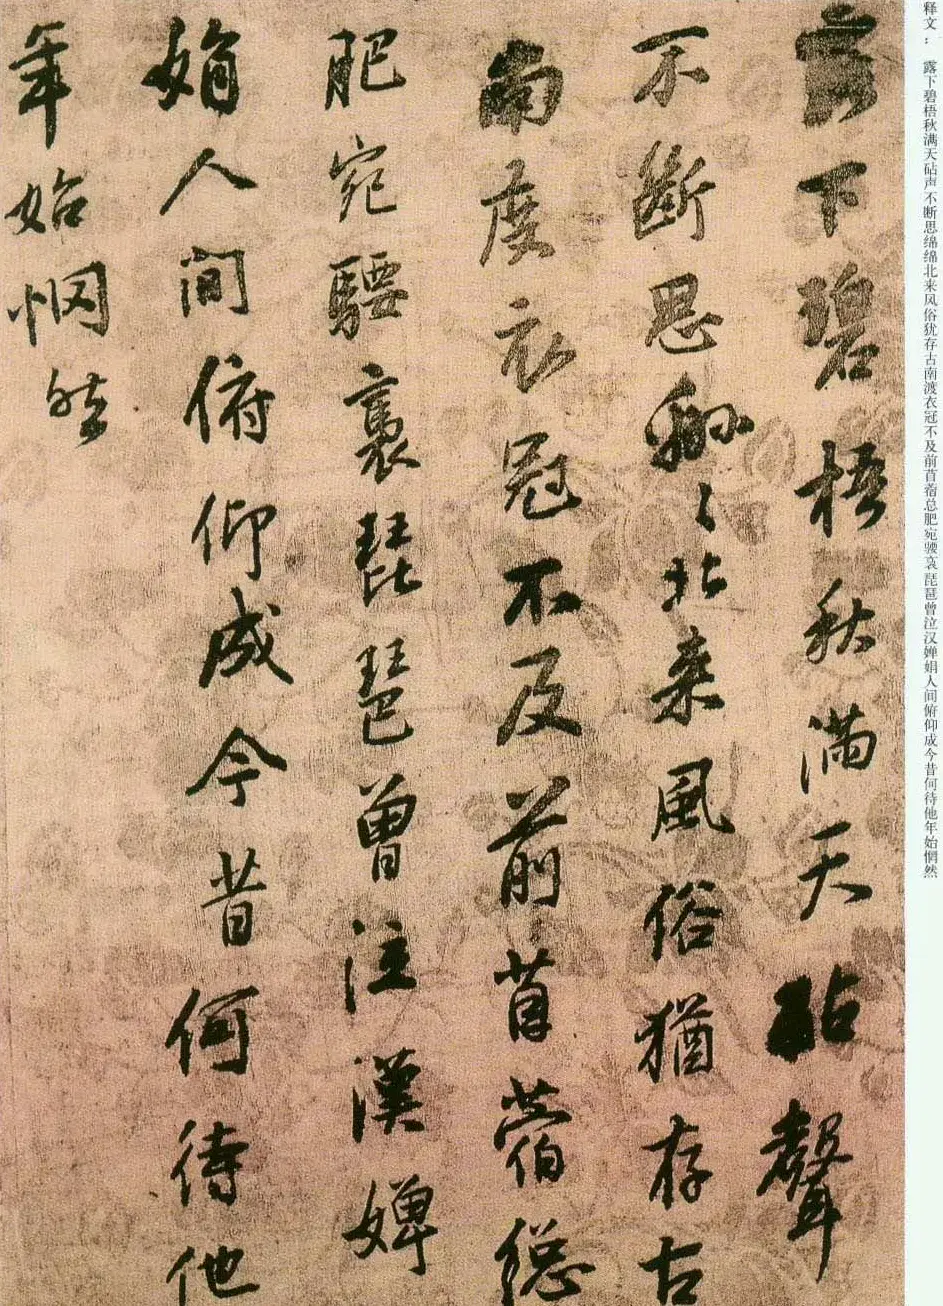 释文： 露下碧梧秋满天砧声不断思绵绵北来风俗犹存古南渡衣冠不及前苜蓿总肥宛騕袅琵琶曾泣汉婵娟人间俯仰成今昔何待他年始惘然
露下碧梧秋滿天砧聲
不斷思緜〻北來風俗猶存古
南度衣冠不及前苜蓿總
肥宛騕褭琵琶曾泣漢嬋
娟人間俯仰成今昔何待他
年始惘然